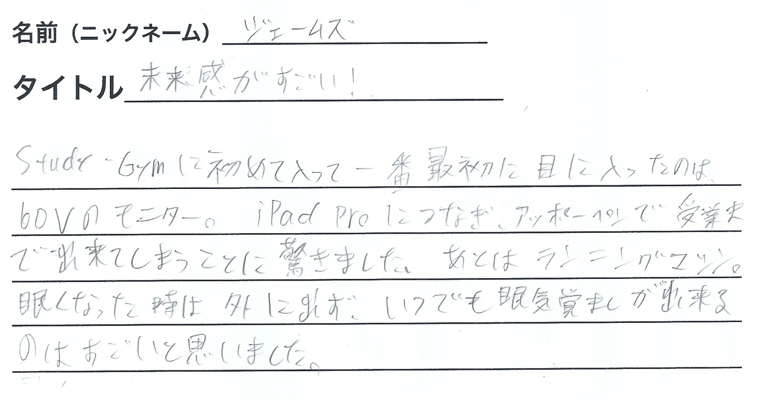 名前（ニックネーム） ジェームズ
タイトル 未来感がすごい！
Study Gymに初めて入って一番最初に目に入ったのは、
60Vのモニター。iPad Proにつなぎ、アッポーペンで受業ま
で出来てしまうことに驚きました。あとはランニングマシン。
眠くなった時は外に出ず、いつでも眠気覚ましが出来る
のはすごいと思いました。